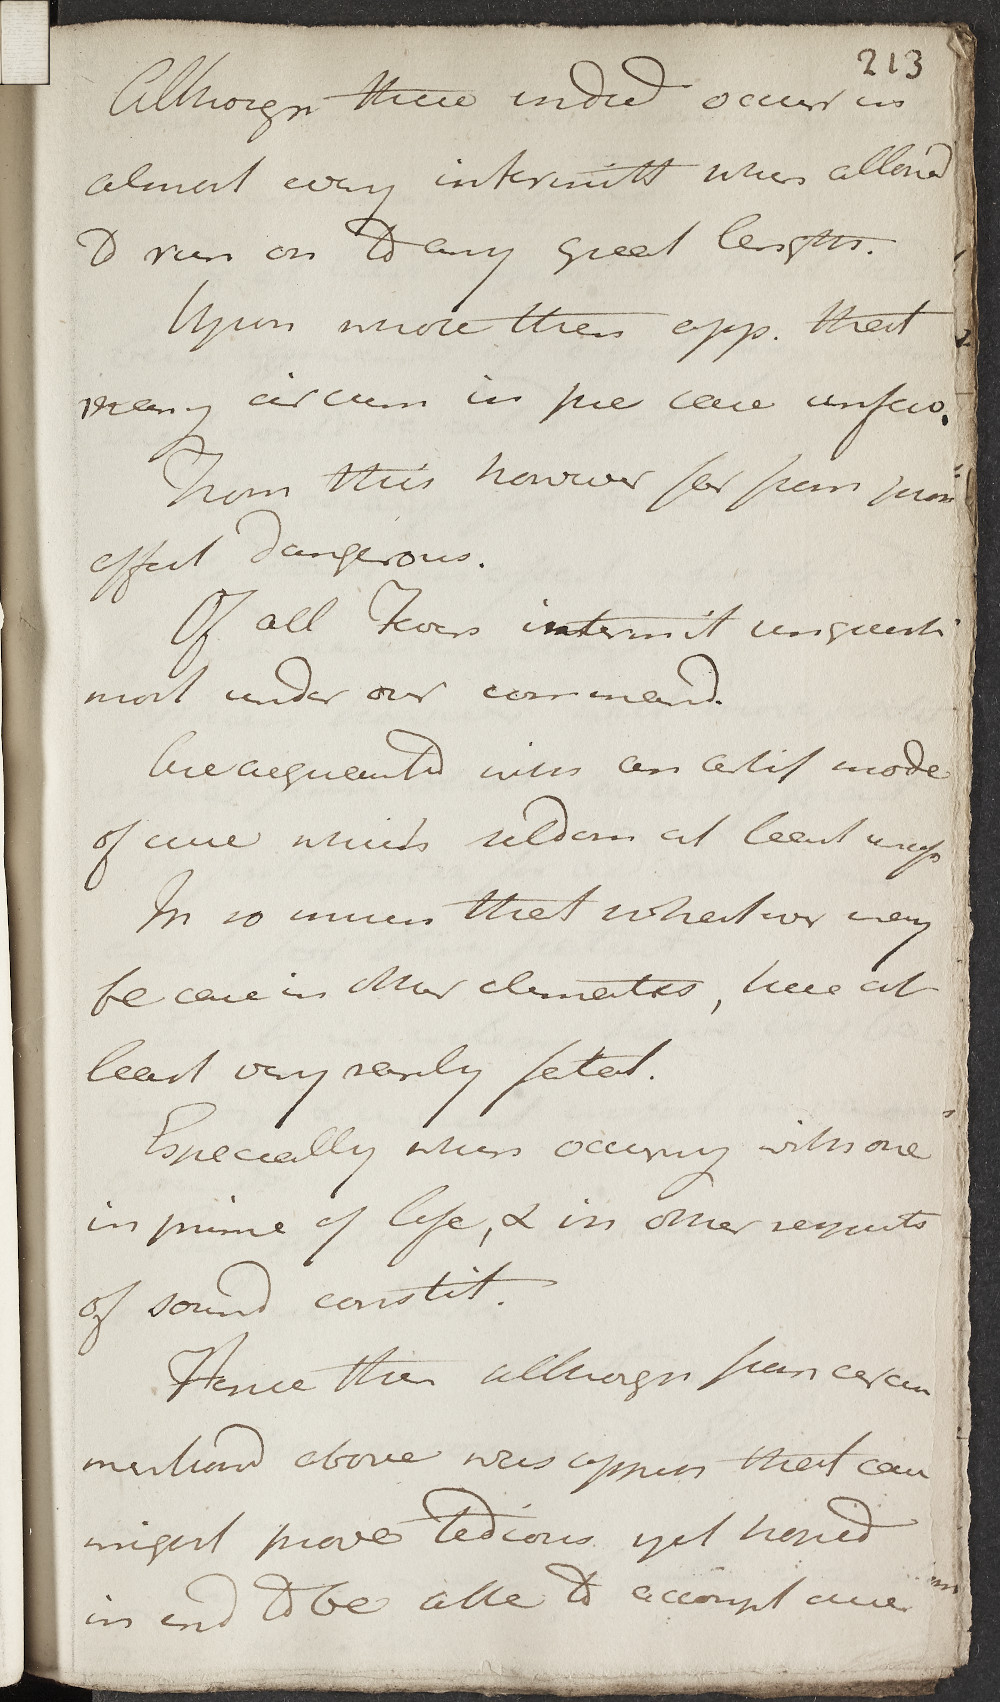 213
Although these indeed occur in
almost every intermitt when allowd
to run on to any great length.
Upon whole then app. that
many circum in pre case unfavo.
From this however far from
effect dangerous.
Of all Fevers intermit unquesti
most under our command.
are acquainted with an artif mode
of cure which seldom at least
In so much that whatever may
be case in other climates, here at
least very rarely fatal.
Especially when occuring with one
in prime of life, & in other respects
of sound constit.
Hence then although from circum
mentiond above was appreh that case
might prove tedious yet hoped
in end to be able to accompl cure